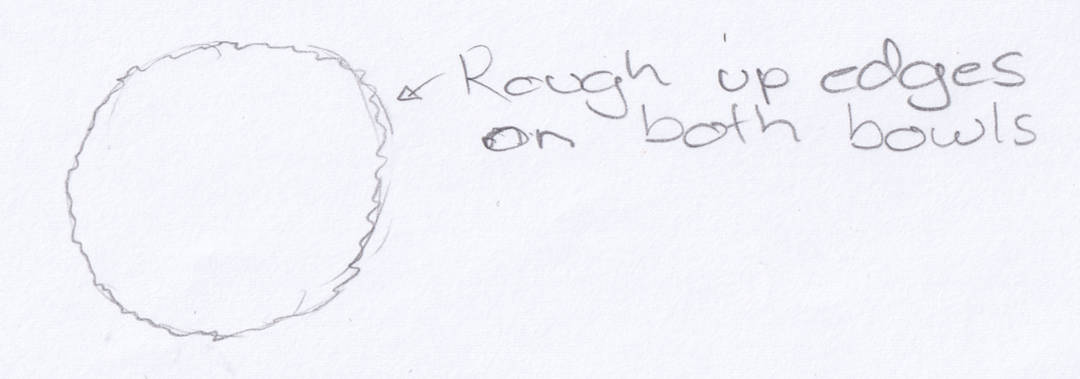 Rough up edges
on both bowls